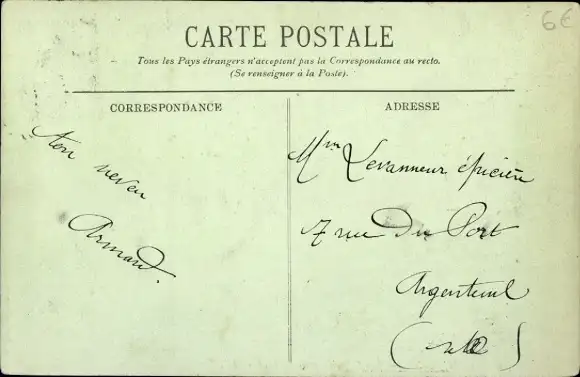 6€
CARTE POSTALE
Tous les Pays étrangers n'acceptent pas la Correspondance au recto.
(Se renseigner à la Poste).
CORRESPONDANCE
ADRESSE
ton neveu
Armand.
Mme Levanneur épicière
7 rue du Port
Argenteuil
(S&O)